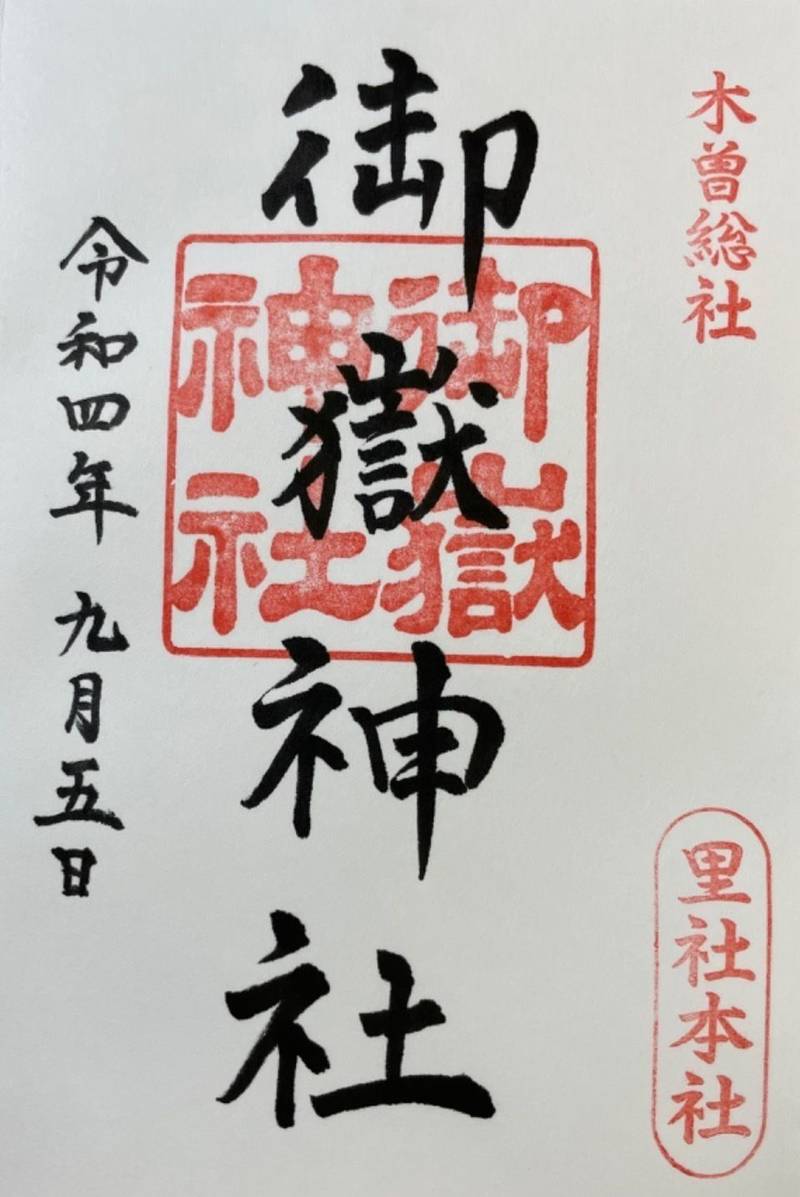 木曽総社
里社本社
御嶽神社
御嶽
神社
令和四年 九月五日